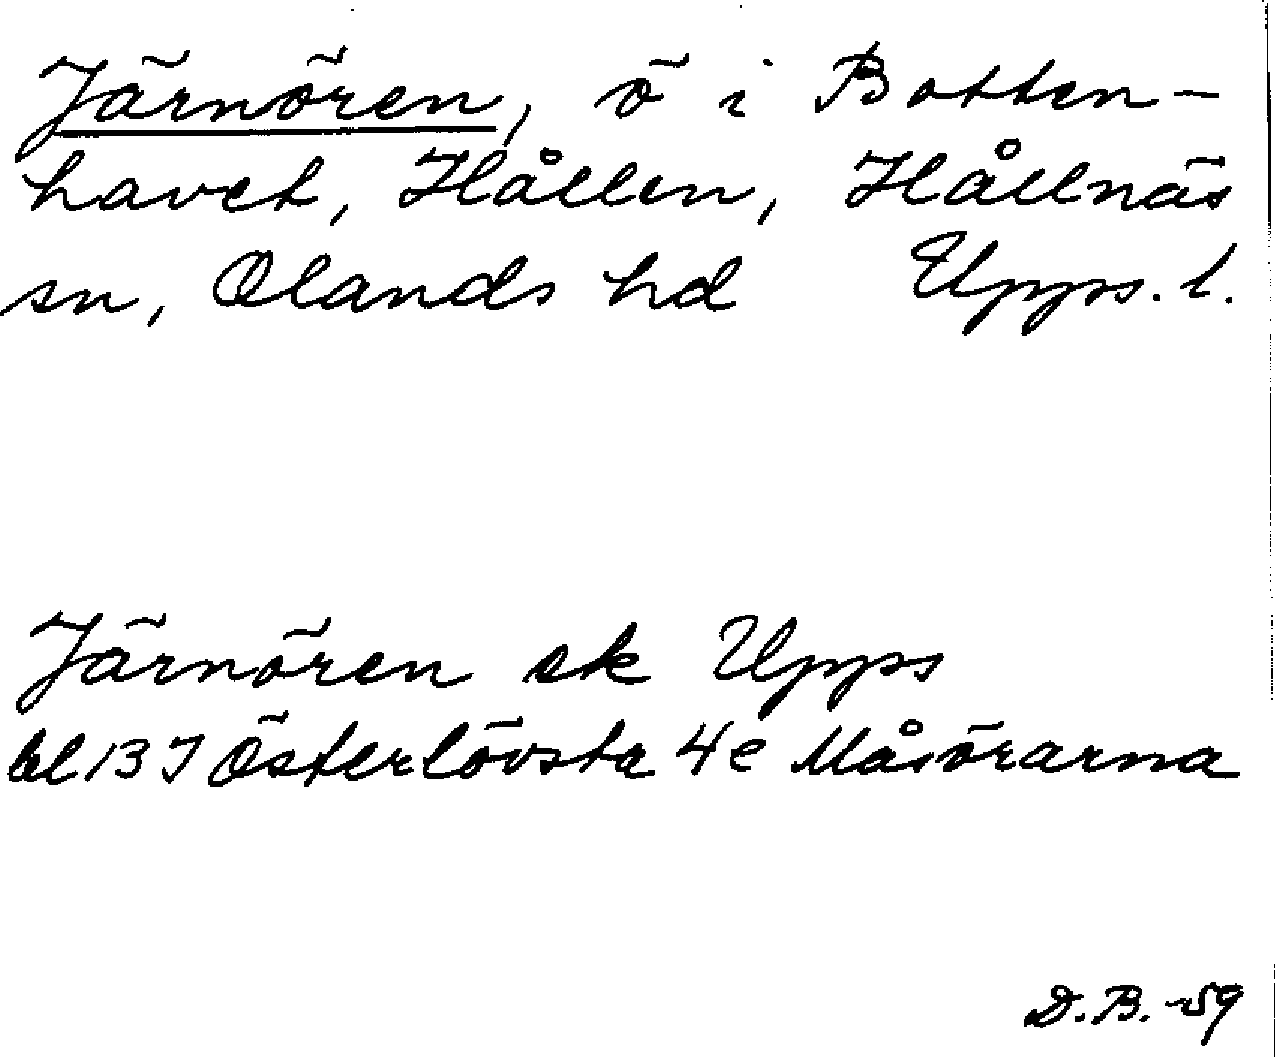 Järnören, ö i Botten-
havet, Hållen, Hållnäs
sn, Olands hd Upps. l.
Järnören ek Upps
bl 13 J Österlövsta 4e Måsörarna
D.B. -59